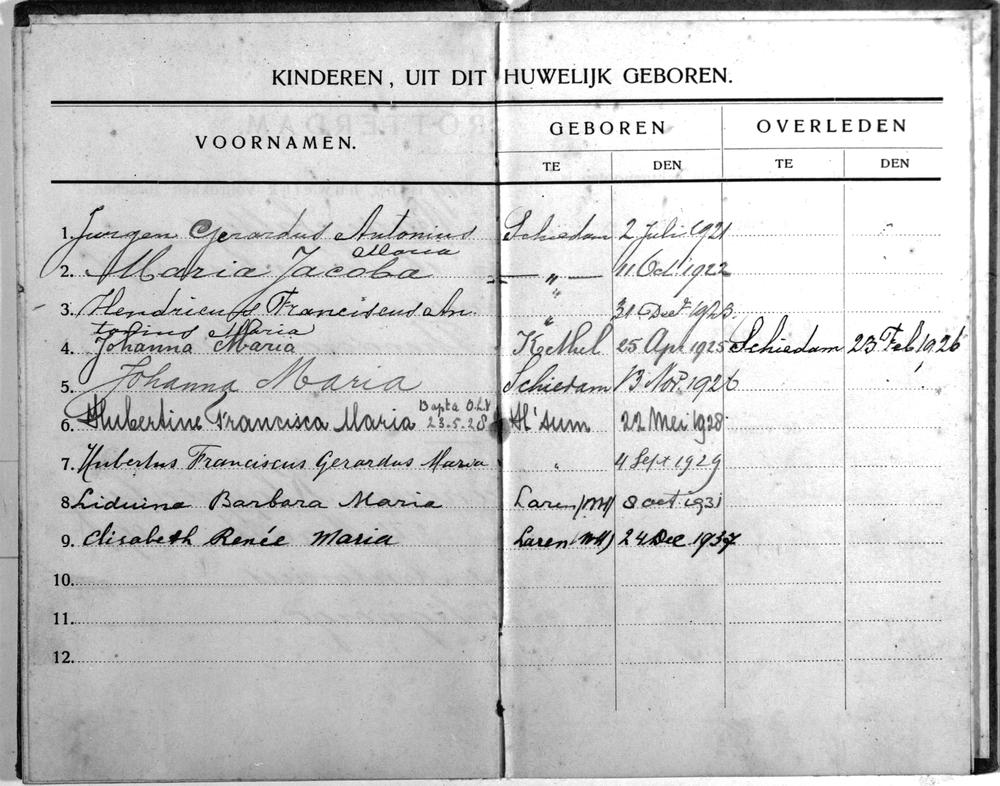 KINDEREN, UIT DIT HUWELIJK GEBOREN.
VOORNAMEN. GEBOREN OVERLEDEN
TE DEN TE DEN
1. Jurgen Gerardus Antonius Schiedam 2 Juli 1921
Maria
2. Maria Jacoba — „ — 11 Oct. 1922
3. Hendricus Franciscus An „ 31 Dec. 1923.
tonius Maria
4. Johanna Maria Kethel 25 Apr 1925 Schiedam 23 Feb 1926
5. Johanna Maria Schiedam 13 Nov. 1926
6. Hubertine Francisca Maria Bapta O.L.V. H'sum 22 Mei 1928
23.5.28
7. Hubertus Franciscus Gerardus Maria „ 4 Sept 1929
8. Liduina Barbara Maria Laren (NH) 8 oct. 1931
9. Elisabeth Renée Maria Laren (NH) 24 Dec 1937
10.
11.
12.